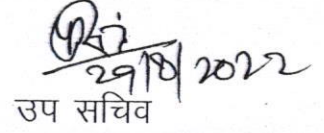 29/8/2022
उप सचिव